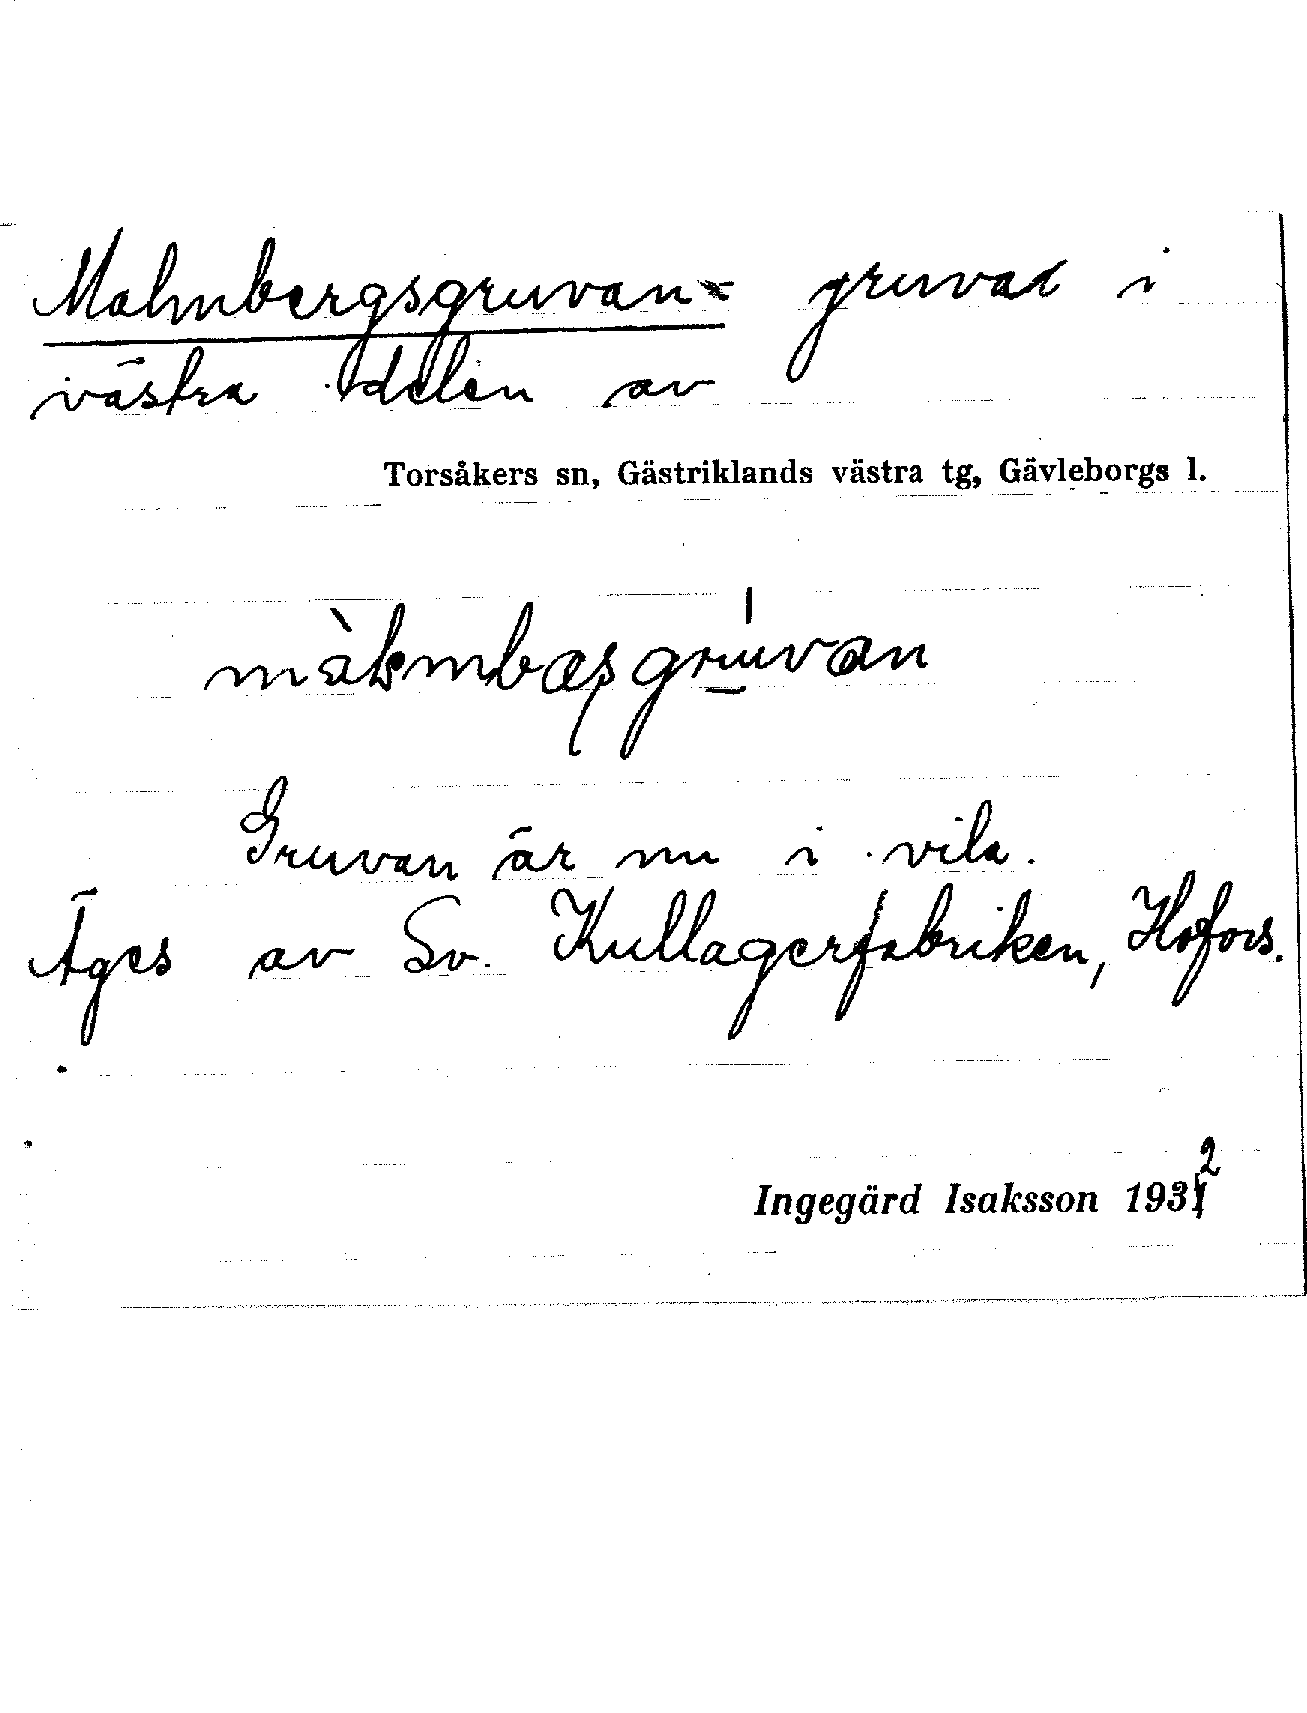 Malmbergsgruvan= gruvad i
västra delen av
Torsåkers sn, Gästriklands västra tg, Gävleborgs l.
màlmbæsgruvan
Gruvan är nu i vila.
Äges av Sv. Kullagerfabriken, Hofors.
Ingegärd Isaksson 1932